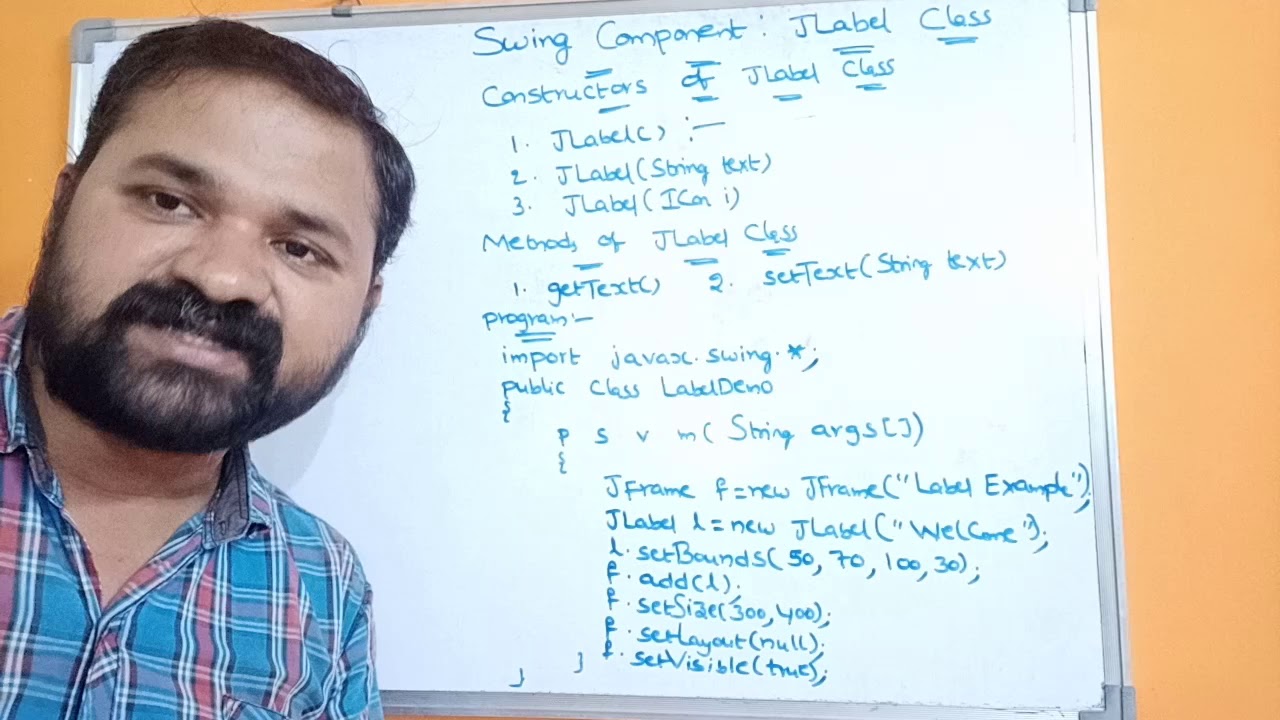 Swing Component : JLabel Class
Constructors of JLabel Class
1. JLabel() :-
2. JLabel(String text)
3. JLabel(Icon i)
Methods of JLabel Class
1. getText() 2. setText(String text)
program:-
import javax.swing.*;
public class LabelDemo
{
p s v m( String args[])
{
JFrame f=new JFrame("Label Example");
JLabel l=new JLabel("Welcome");
l.setBounds(50,70,100,30);
f.add(l);
f.setSize(300,400);
f.setLayout(null);
f.setVisible(true);
}
}